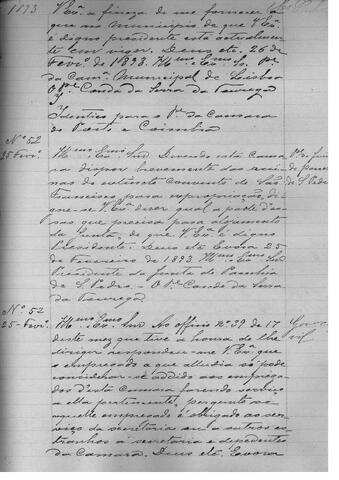 1893
V. Exª a fineza de me fornecer
que no municipio de que V. Exª
é digno presidente está actualmente
em vigor. Deus etc. 25 de
Fevrº de 1893. Illmo Exmo Sr. Pe
da Camª Municipal de Lisboa
O Pe Conde da Serra da Tourega
Identico para o Pe da Camara
do Porto e Coimbra
Nº 52
25 Fevrº
Illmo Exmo Snr. Devendo esta Cama
ra dispor brevemente das rui-
nas do extincto convento de São
Francisco para expropriação, di-
ne-se V. Exª dizer qual a parte d'el-
las que precisa para alojamento
da Junta, de que V. Exª é digno
Presidente. Deus etc. Evora 25
de Fevereiro de 1893. Illmo Exmo Snr
Presidente da Junta de Parochia
de S. Pedro - O Pe Conde da Serra
da Tourega
Pe da Junta
de Paroch
de S. Pedro
Nº 52
25 Fevrº
Illmo Exmo Snr. Ao officio nº 39 de 17
deste mez que tive a honra de lhe
dirigir respondeu-me V. Exª que
o empregado a que alludia só pode
considerar-se addido aos emprega-
dos d'esta Camara fazendo serviço
a ella pertinente; pergunto se
aquelle empregado é obrigado ao ser-
viço da secretaria ou a outros es-
tranhos á secretaria e dependentes
da Camara. Deus etc. Evora